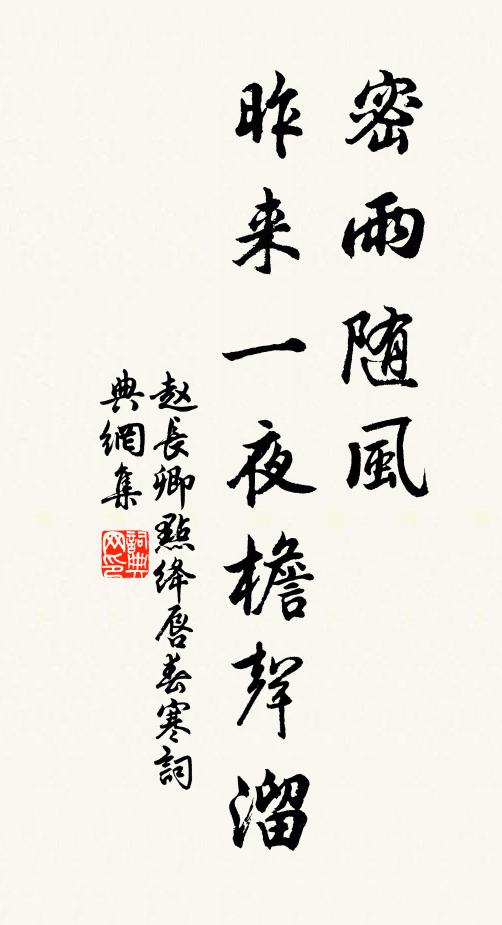 密雨随風
昨来一夜檐聲溜
赵長卿點绛唇春寒詞
典網集
詞典
网印